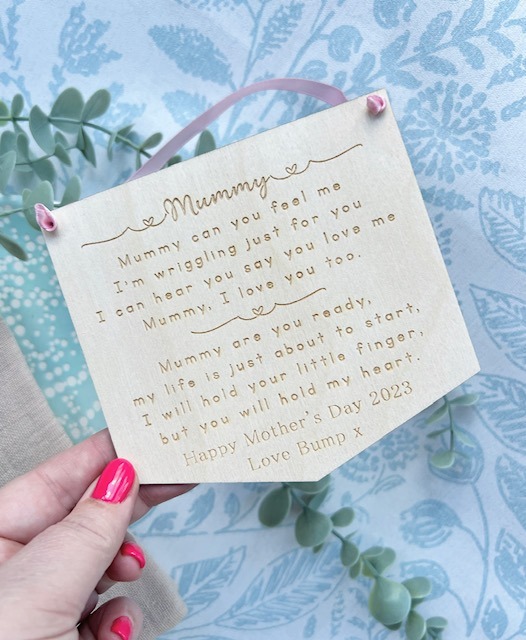 Mummy
Mummy can you feel me
I'm wriggling just for you
I can hear you say you love me
Mummy, I love you too.
Mummy are you ready,
my life is just about to start,
I will hold your little finger,
but you will hold my heart.
Happy Mother's Day 2023
Love Bump x